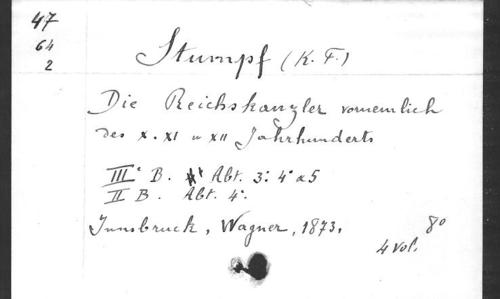 47
64
2
Stumpf (K. F.)
Die Reichskanzler vornemlich
des X. XI u XII Jahrhunderts
III B. Abt. 3: 4 5
II B. Abt. 4.
Innsbruck, Wagner, 1873.
8°
4 vol.